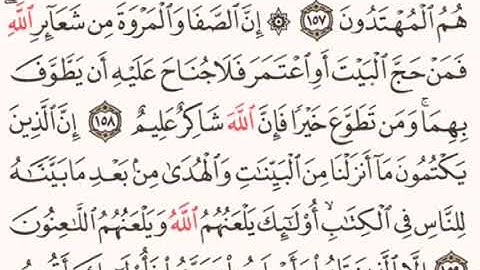 هُمُ ٱلْمُهْتَدُونَ ۝١٥٧ ۞ إِنَّ ٱلصَّفَا وَٱلْمَرْوَةَ مِن شَعَآئِرِ ٱللَّهِۖ
فَمَنْ حَجَّ ٱلْبَيْتَ أَوِ ٱعْتَمَرَ فَلَا جُنَاحَ عَلَيْهِ أَن يَطَّوَّفَ
بِهِمَاۚ وَمَن تَطَوَّعَ خَيْرًا فَإِنَّ ٱللَّهَ شَاكِرٌ عَلِيمٌ ۝١٥٨ إِنَّ ٱلَّذِينَ
يَكْتُمُونَ مَآ أَنزَلْنَا مِنَ ٱلْبَيِّنَٰتِ وَٱلْهُدَىٰ مِنۢ بَعْدِ مَا بَيَّنَّٰهُ
لِلنَّاسِ فِى ٱلْكِتَٰبِۙ أُو۟لَٰٓئِكَ يَلْعَنُهُمُ ٱللَّهُ وَيَلْعَنُهُمُ ٱللَّٰعِنُونَ